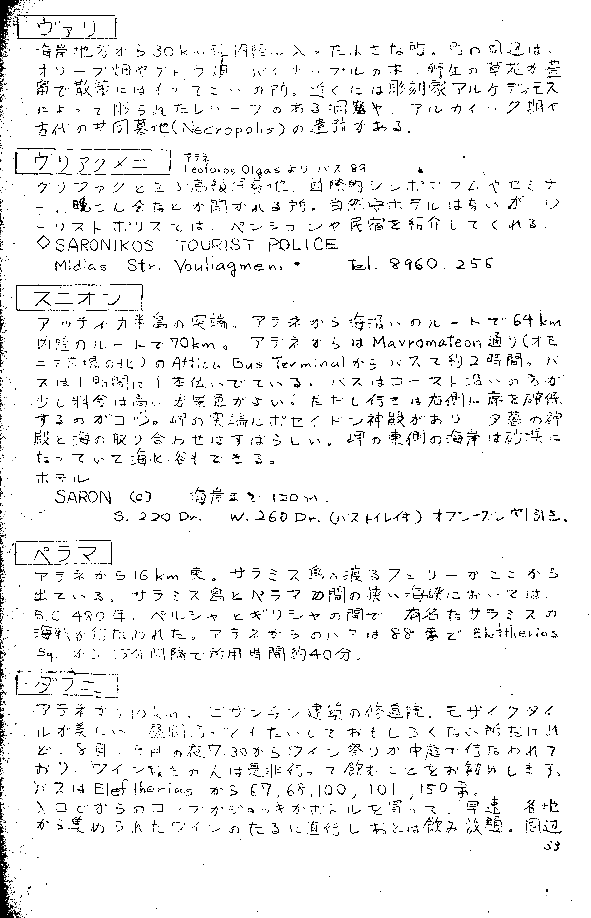 ヴァリ
海岸地方から30km程内陸に入った小さな町。町の周辺は、
オリーブ畑やブドウ畑 パイナップルの木、野生の草花が豊
富で散策にはもってこいの所。近くには彫刻家アルケデェモス
によって彫られたレリーフのある洞窟や、アルカイック期や
古代の共同墓地(Necropolis)の遺跡がある。
ヴリアグメニ
アテネ
Leoforos Olgasよりバス89
グリファダとならぶ高級住宅地。国際的シンポジウムやセミナ
ー、晩さん会などが開かれる所。自然 ホテルは高いが ツ
ーリストポリスでは、ペンションや民宿を紹介してくれる。
◇SARONIKOS TOURIST POLICE
Midias Str. Vouliagmeni・ Tel. 8960.256
スニオン
アッティカ半島の突端。アテネから海沿いのルートで64km
内陸のルートで70km。アテネからはMavromateon通り(オモ
ニア広場の北)のAttica Bus Terminalからバスで約2時間。バ
スは1時間に1本位いでている。バスはコースト沿いの方が
少し料金は高いが景色がよい。ただし行きは右側に席を確保
するのがコツ。岬の突端にポセイドン神殿があり 夕暮の神
殿と海の取り合わせはすばらしい。岬の東側の海岸は砂浜に
なっていて海水浴もできる。
ホテル
SARON (C) 海岸まで150m.
S. 220 Dr. W. 260 Dr.(バストイレ付) オフシーズン割引き。
ペラマ
アテネから16km東。サラミス島へ渡るフェリーがここから
出ている。サラミス島とペラマの間の狭い海峡においては、
B.C 480年、ペルシャとギリシャの間で 有名なサラミスの
海戦が行なわれた。アテネからのバスは88番でEleftherias
Sq. から15分間隔で所用時間約40分。
ダフニ
アテネから10km。ビザンチン建築の修道院、モザイクタイ
ルが美しい。昼間 たいしておもしろくない所だけれ
ど、8月、9月の夜7.30からワイン祭りが中庭で行なわれて
おり、ワイン好きの人は是非行って飲むことをお勧めします。
バスはEleftheriasから67,68,100, 101, 150番。
入口でからのコップかジョッキかボトルを買って、早速 各地
から集められたワインのたるに直行しあとは飲み放題。周辺
53